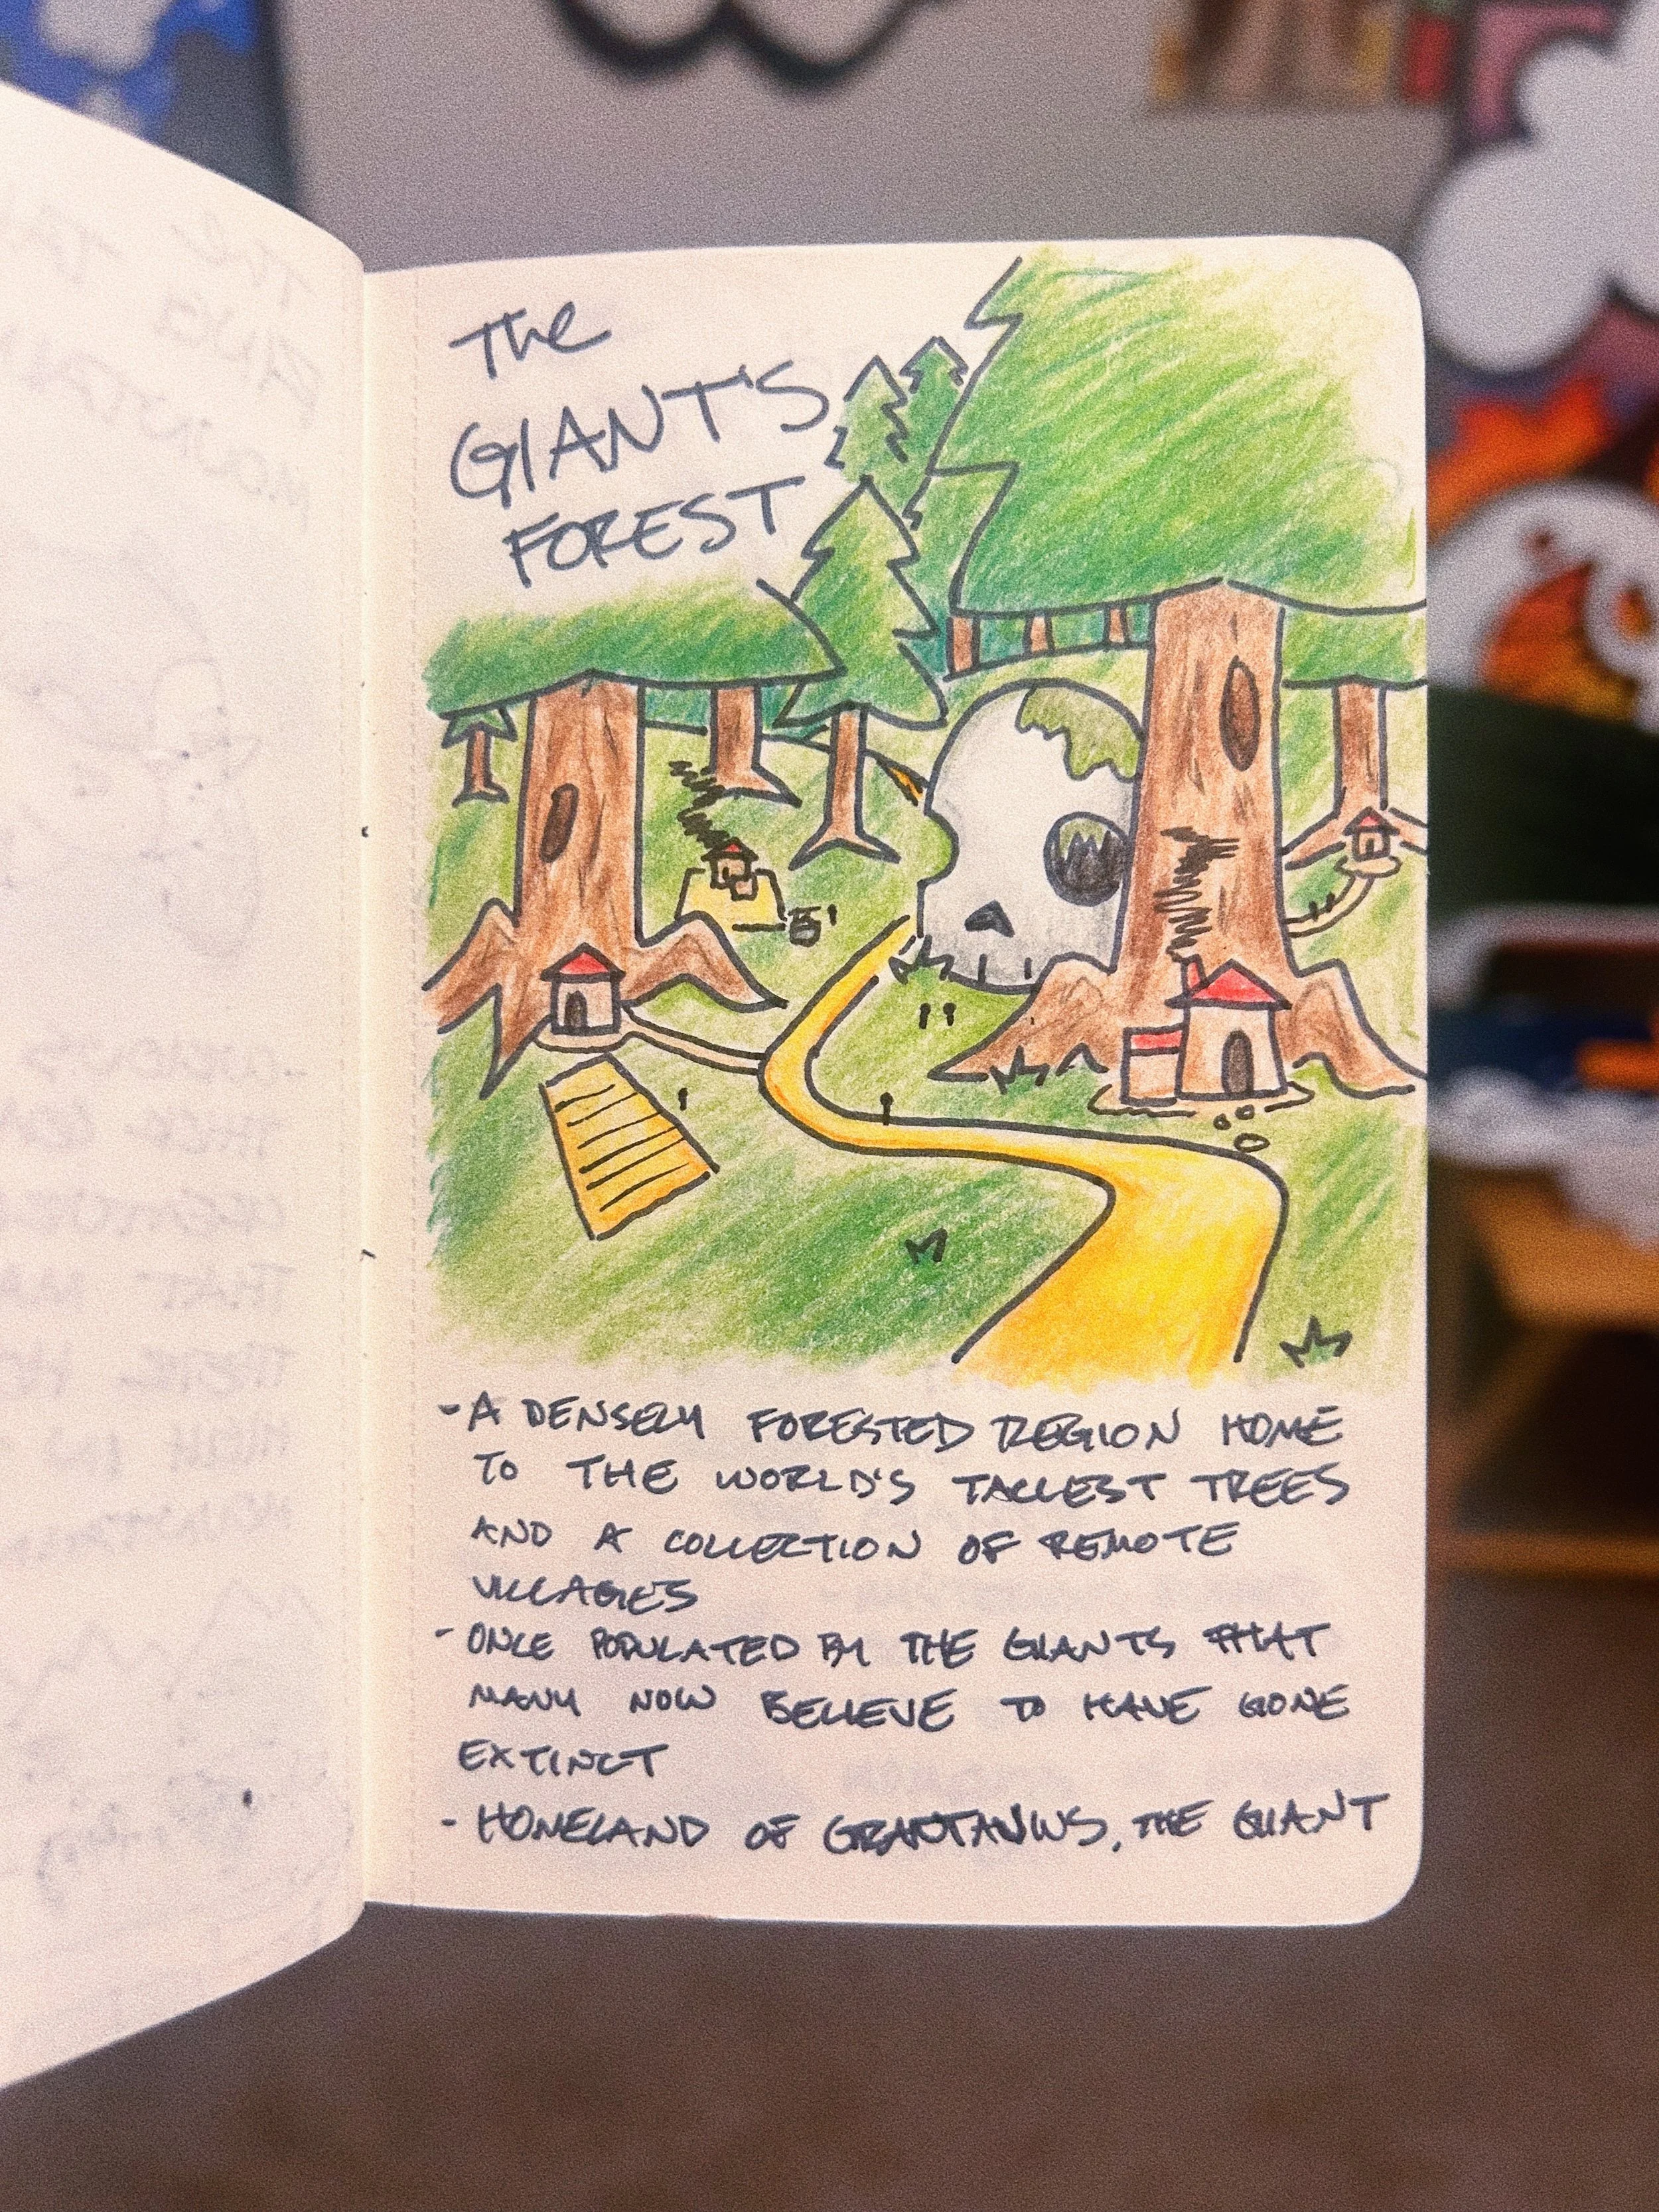 The
GIANT'S
FOREST
- A DENSELY FORESTED REGION HOME
TO THE WORLD'S TALLEST TREES
AND A COLLECTION OF REMOTE
VILLAGES
- ONCE POPULATED BY THE GIANTS THAT
MANY NOW BELIEVE TO HAVE GONE
EXTINCT
- HOMELAND OF THE GIANT